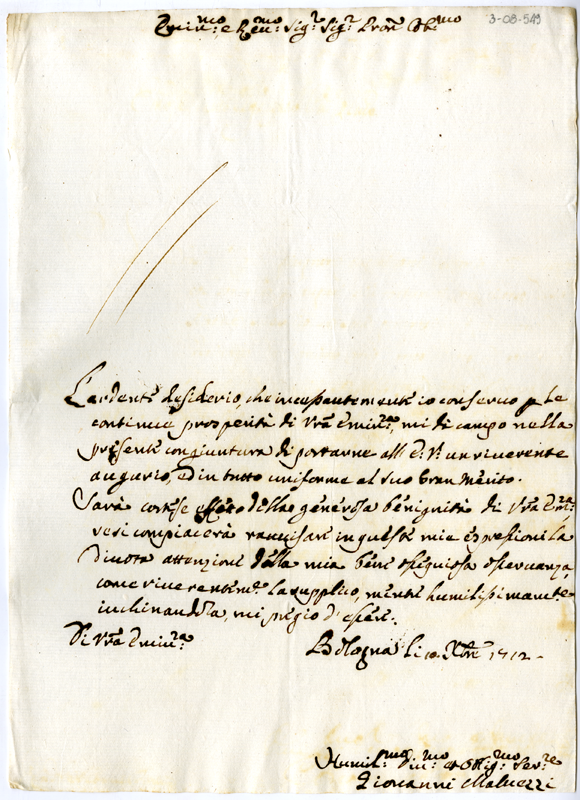 3-08-549
Emin:mo e Rev:mo Sig:r Sig:r Pron Col:mo
L'ardente desiderio, che incessantemente io conservo p le
continue prosperità di Vrã Emin:za, mi dà campo nella
presente congiuntura di portarne all' E: V: un riverente
augurio, ed in tutto uniforme al suo Gran Merito.
Sarà cortese effetto della generosa benignità di Vrã Em:za
se si compiacerà ravvisare in queste mie espressioni la
divota attenzione della mia ben ossequiosa osservanza,
come riverentem:e la supplico, mentre humilissimamte
inchinandola, mi pregio d'essere.
Di Vrã Emin:za
Bologna li 10 Xbre 1712 -
Humil:mo Div:mo et Oblig:mo Ser:re
Giovanni Malvezzi